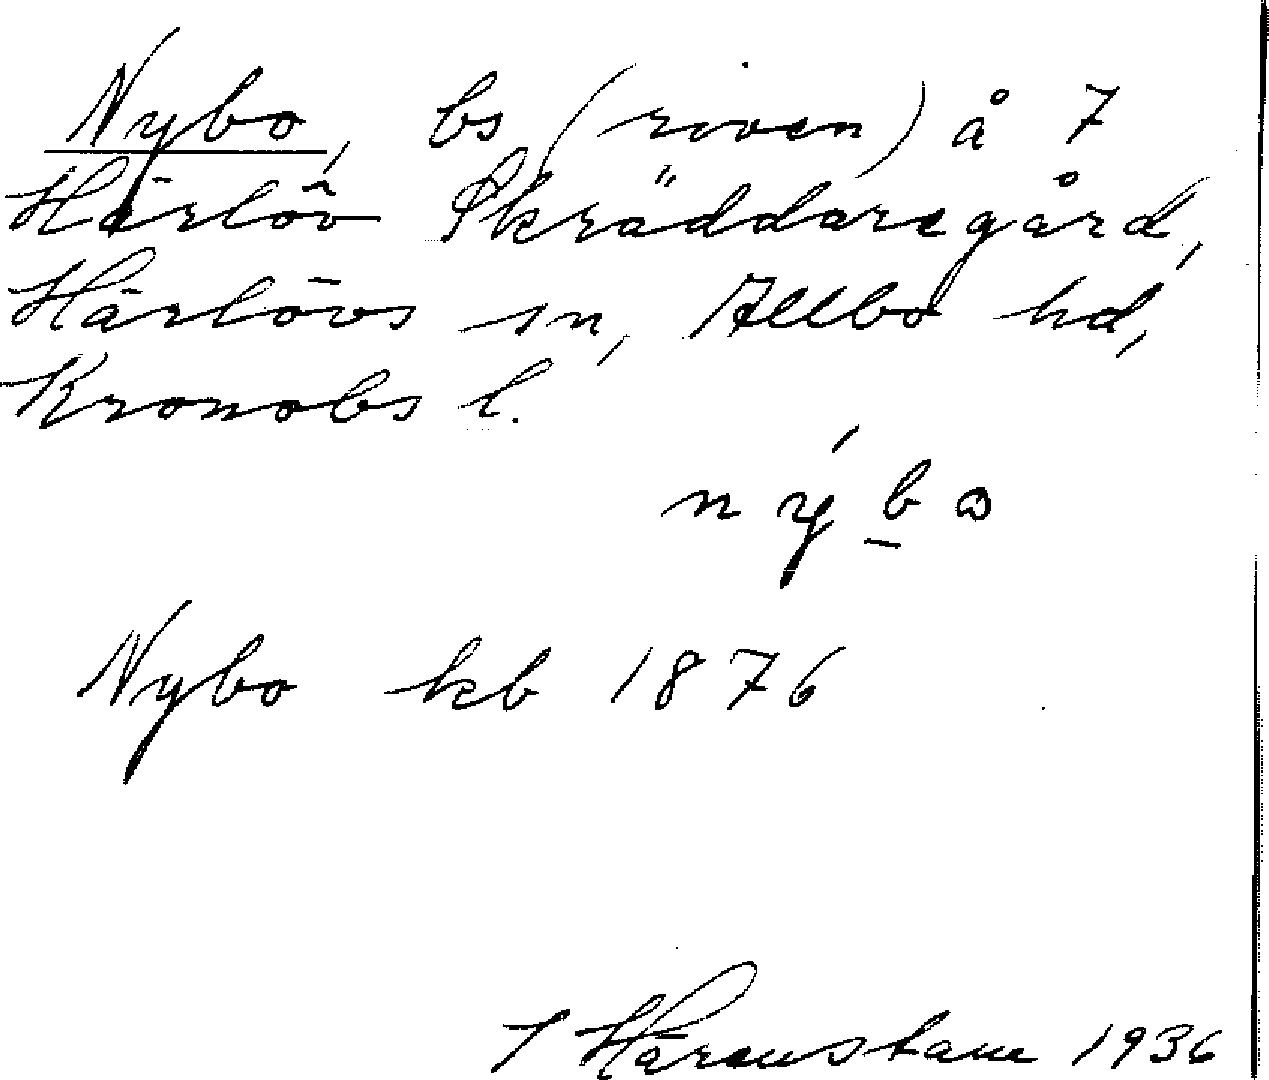 Nybo, bs (riven) å 7
Härlöv Skräddaregård,
Härlövs sn, Allbo hd,
Kronobs l.
nýbo
Nybo kb 1876
1936